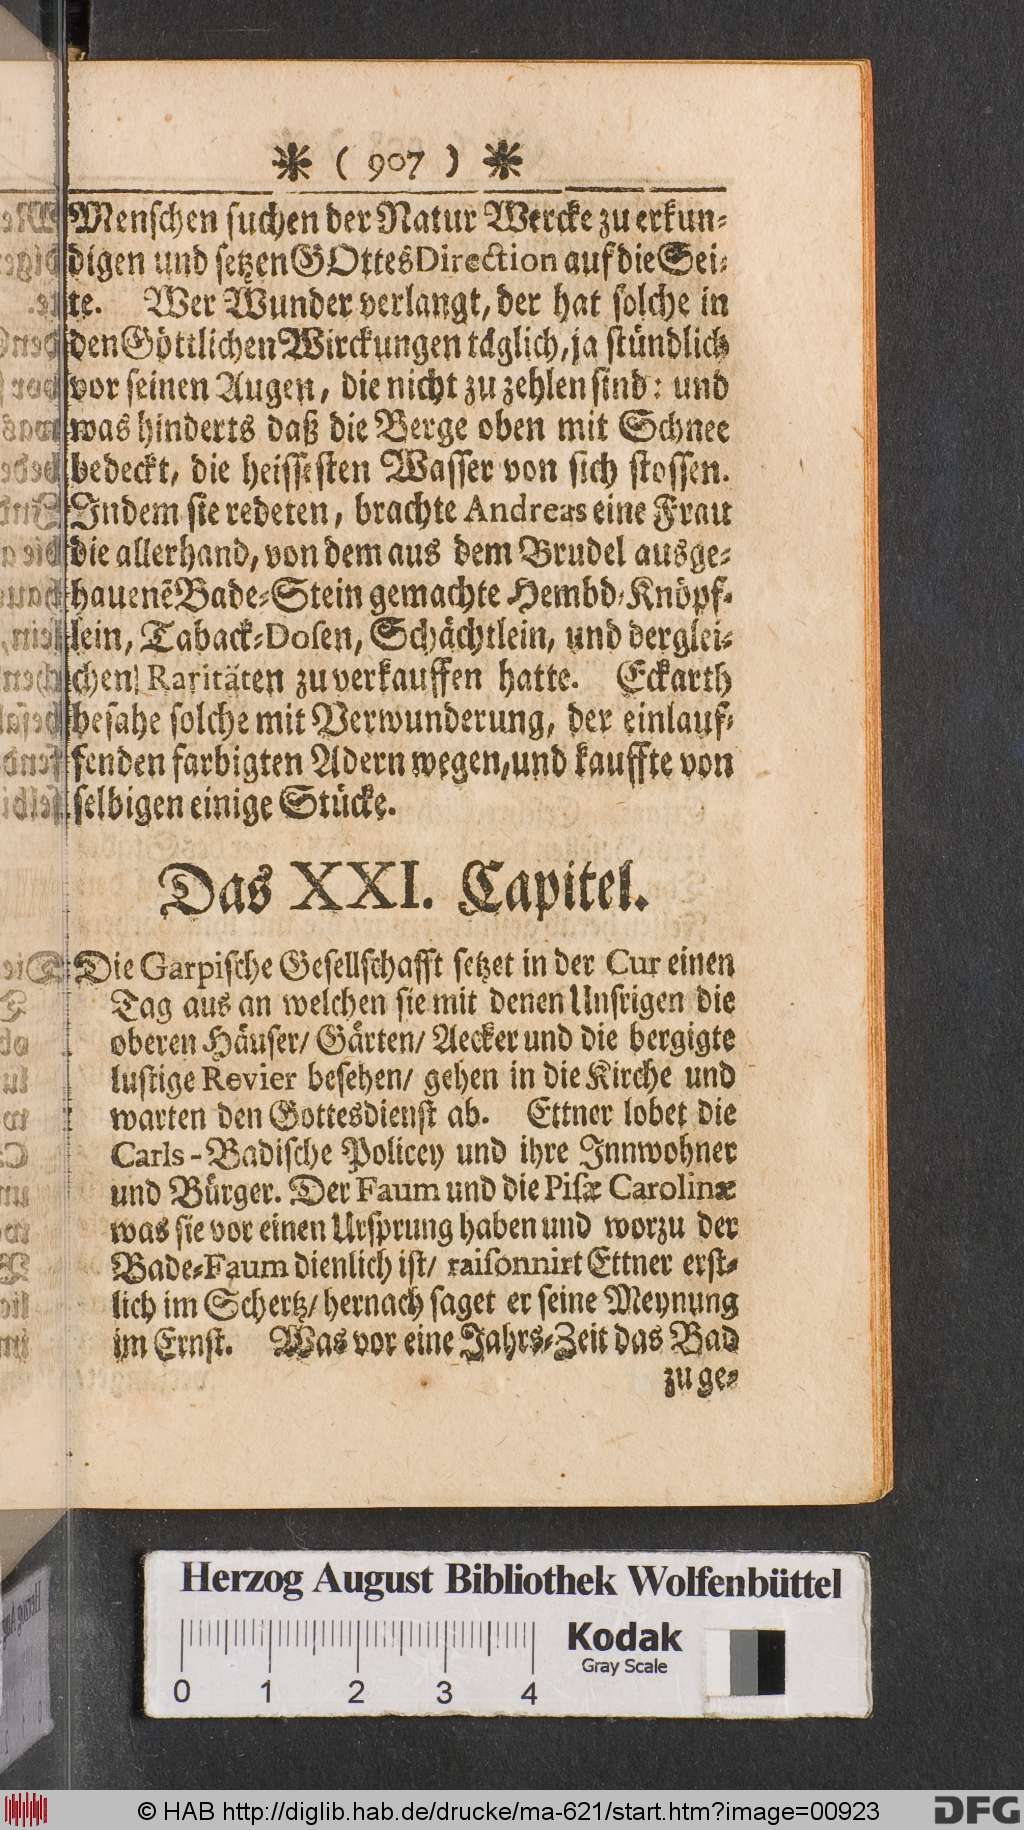 * ( 907 ) *
Menschen suchen der Natur Wercke zu erkun-
digen und setzen GOttes Direction auf die Sei-
te. Wer Wunder verlangt, der hat solche in
den Göttlichen Wirckungen täglich, ja stündlich
vor seinen Augen, die nicht zu zehlen sind: und
was hinderts daß die Berge oben mit Schnee
bedeckt, die heissesten Wasser von sich stossen.
Indem sie redeten, brachte Andreas eine Frau
die allerhand, von dem aus dem Brudel ausge-
hauenē Bade-Stein gemachte Hembd-Knöpf-
lein, Taback-Dosen, Schächtlein, und derglei-
chen Raritäten zu verkauffen hatte. Eckarth
besahe solche mit Verwunderung, der einlauf-
fenden farbigten Adern wegen, und kauffte von
selbigen einige Stücke.
Das XXI. Capitel.
Die Garpische Gesellschafft setzet in der Cur einen
Tag aus an welchen sie mit denen Unsrigen die
oberen Häuser/ Gärten/ Aecker und die bergigte
lustige Revier besehen/ gehen in die Kirche und
warten den Gottesdienst ab. Ettner lobet die
Carls-Badische Policey und ihre Innwohner
und Bürger. Der Faum und die Pisæ Carolinæ
was sie vor einen Ursprung haben und worzu der
Bade-Faum dienlich ist/ raisonnirt Ettner erst-
lich im Schertz/ hernach saget er seine Meynung
im Ernst. Was vor eine Jahrs-Zeit das Bad
zu ge-
Herzog August Bibliothek Wolfenbüttel
Kodak
Gray Scale
0 1 2 3 4
© HAB http://diglib.hab.de/drucke/ma-621/start.htm?image=00923
DFG